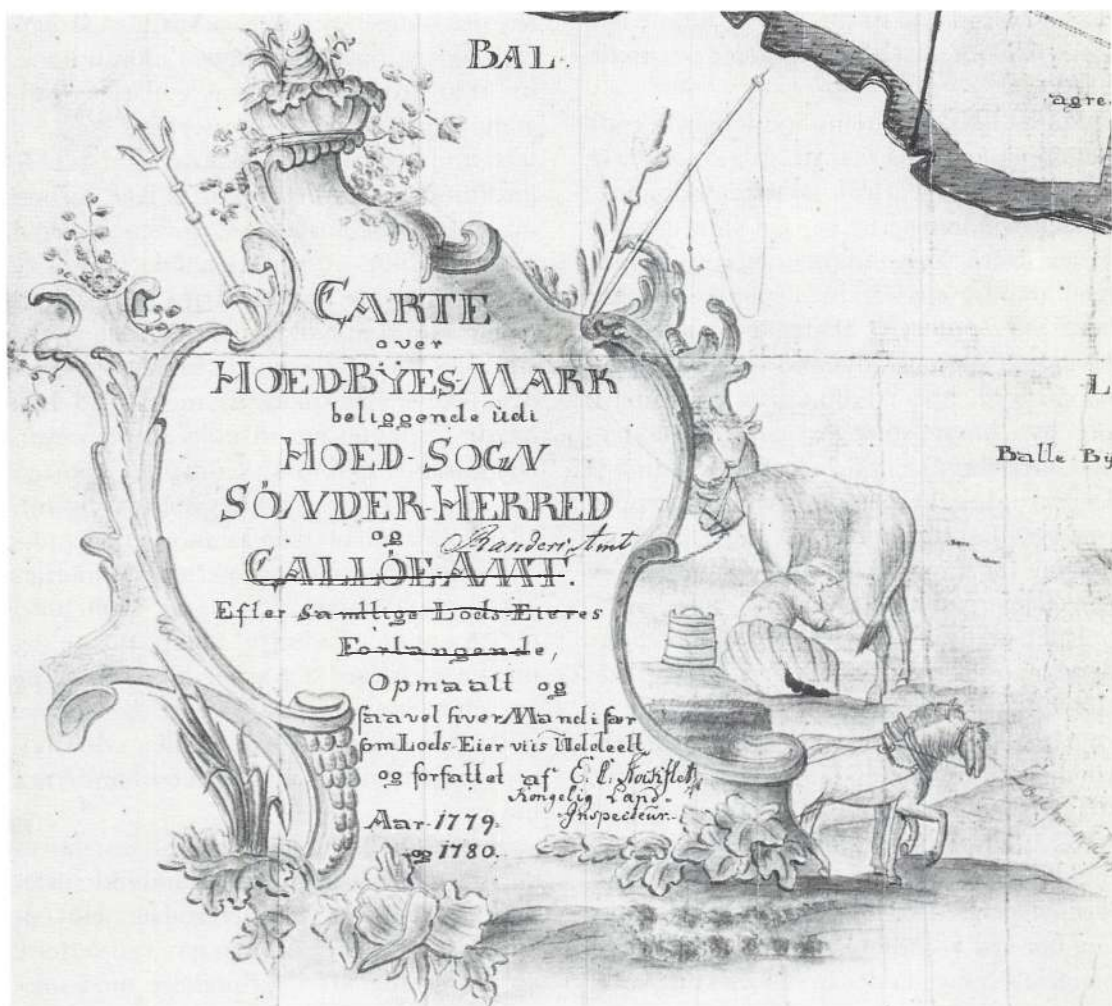 BAL.
agre
CARTE
over
HOED-BŸES-MARK
beliggende udi
HOED-SOGN
SÖNDER-HERRED
og Randers Amt
CALLÖE AMT.
Efter Samtlige Lods-Eieres
Forlangende,
Opmaalt og
saavel hver Mand især
som Lods-Eier viis Uddeelt
og forfattet af E. L.
Kongelig Land-
Inspecteur.
Aar 1779.
og 1780.
L
Balle Bÿ